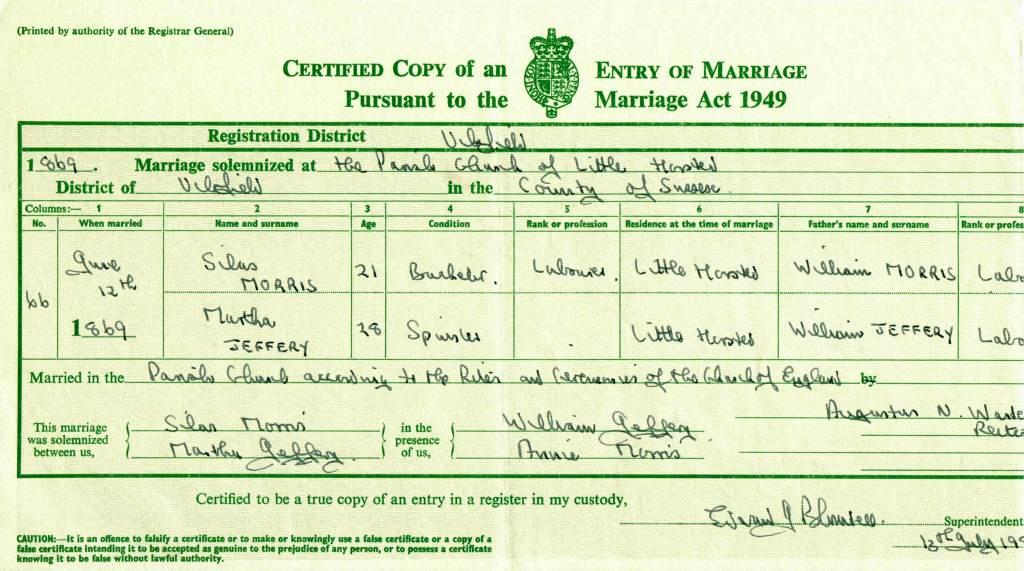 (Printed by authority of the Registrar General)
CERTIFIED COPY OF AN ENTRY OF MARRIAGE
Pursuant to the Marriage Act 1949
Registration District Uckfield
1869. Marriage solemnized at the Parish Church of Little Horsted
District of Uckfield in the County of Sussex.
Columns:— 1 2 3 4 5 6 7 8
No. When married Name and surname Age Condition Rank or profession Residence at the time of marriage Father's name and surname Rank or profes
66 June 12th 1869 Silas MORRIS 21 Bachelor. Labourer. Little Horsted William MORRIS Labo
Martha JEFFERY 28 Spinster Little Horsted William JEFFERY Labo
Married in the Parish Church according to the Rites and Ceremonies of the Church of England by
Augustus N.
This marriage was solemnized between us, Silas Morris in the presence of us, William Jeffery
Martha Jeffery. Annie Morris
Certified to be a true copy of an entry in a register in my custody,
Superintendent
13th July 19
CAUTION:—It is an offence to falsify a certificate or to make or knowingly use a false certificate or a copy of a
false certificate intending it to be accepted as genuine to the prejudice of any person, or to possess a certificate
knowing it to be false without lawful authority.